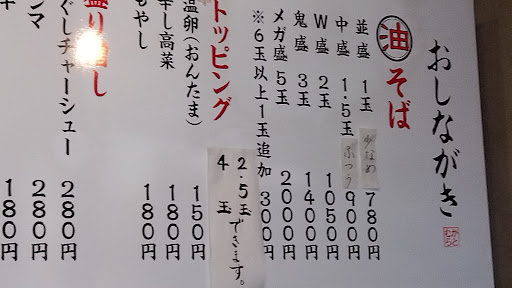 おしながき
油そば
並盛 1玉 少なめ 780円
中盛 1.5玉 ふつう 900円
W盛 2玉 1050円
鬼盛 3玉 1400円
メガ盛 5玉 2000円
※6玉以上1玉追加 300円
2.5玉
4玉
できます。
トッピング
温卵(おんたま) 150円
辛し高菜 180円
もやし 180円
盛り増し
ぐしチャーシュー 280円
ンマ 280円
180円